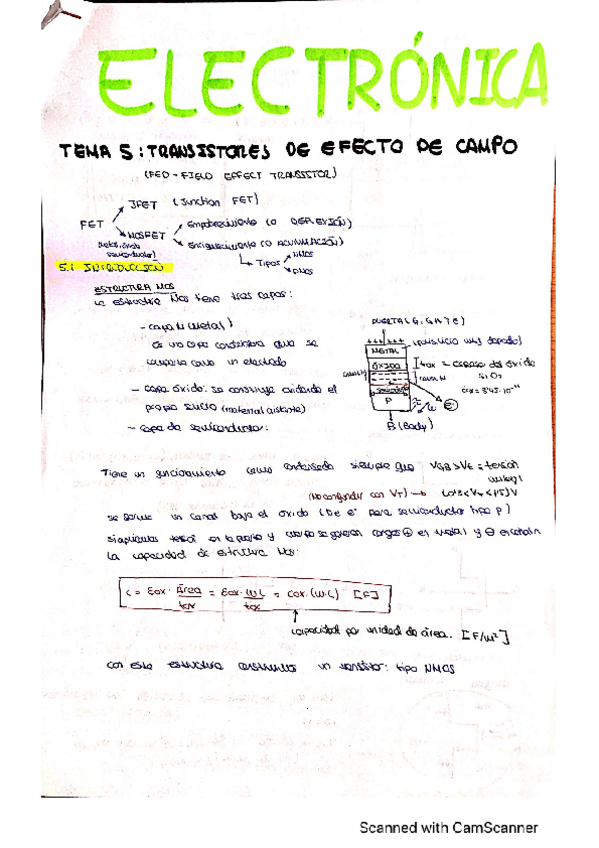 ELECTRÓNICA
TEMA 5: TRANSISTORES DE EFECTO DE CAMPO
(FED - FIELD EFFECT TRANSISTOR)
JFET (Junction FET)
FET
MOSFET
Empobrecimiento (O DEPLEXIÓN)
Enriquecimiento (O ACUMULACIÓN)
Tipos
NMOS
PMOS
5.1 INTRODUCCIÓN
ESTRUCTURA MOS
La estructura Mos tiene tres capas:
- capa M (Metal)
es una capa conductora que se
comporta como un electrodo
- capa óxido: se construye oxidando el
propio silicio (material aislante)
- capa de semiconductor:
PUERTA (G, GATE)
METAL
OXIDO
tox = espesor del óxido
SiO2
P
e-
B (Body)
Tiene un funcionamiento como condensador siempre que VGB > Vt = tensión
umbral
(No confundir con VT) →
se forma un canal bajo el óxido (De e- para semiconductor tipo p)
si aplicamos tensión en la puerta y cuerpo se generan cargas ⊕ en metal y ⊖ en
La capacidad de estructura Mos:
C = Eox · Área / tox = Eox · W·L / tox = Cox · (W·L) [F]
capacidad por unidad de área. [F/m²]
con esta estructura construimos un transistor: tipo NMOS
Scanned with CamScanner